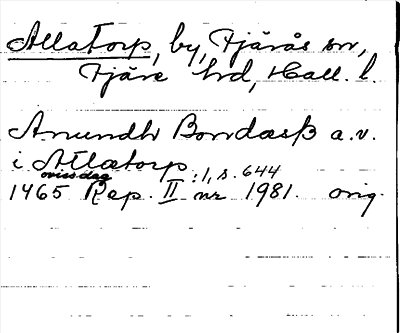 Allatorp, by, Fjärås sn,
Fjäre hd, Hall. l.
Anundh Bondasß a.v.
i Atlatorp : 1, s. 644
oviss dag
1465 Rep. II nr 1981. orig.